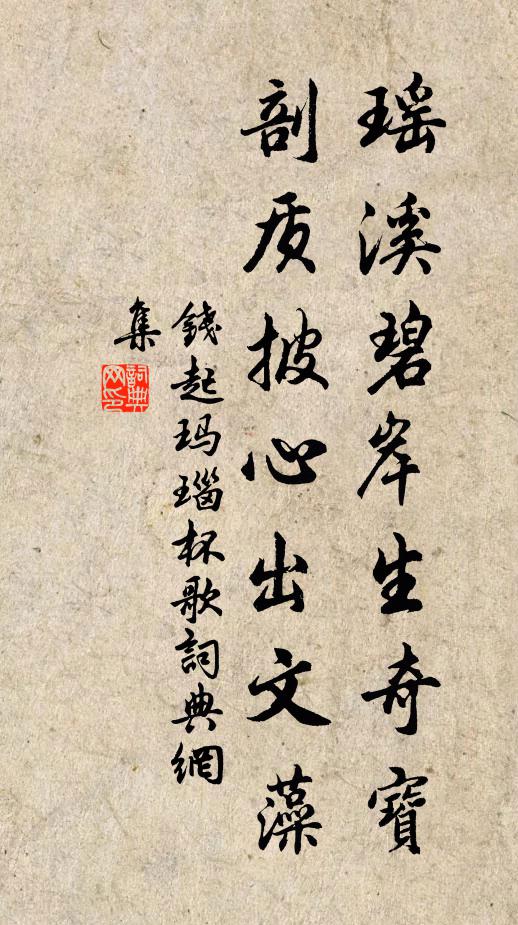 瑶溪碧岸生奇寶
剖质披心出文藻
錢起玛瑙杯歌詞典網
集
詞典网印